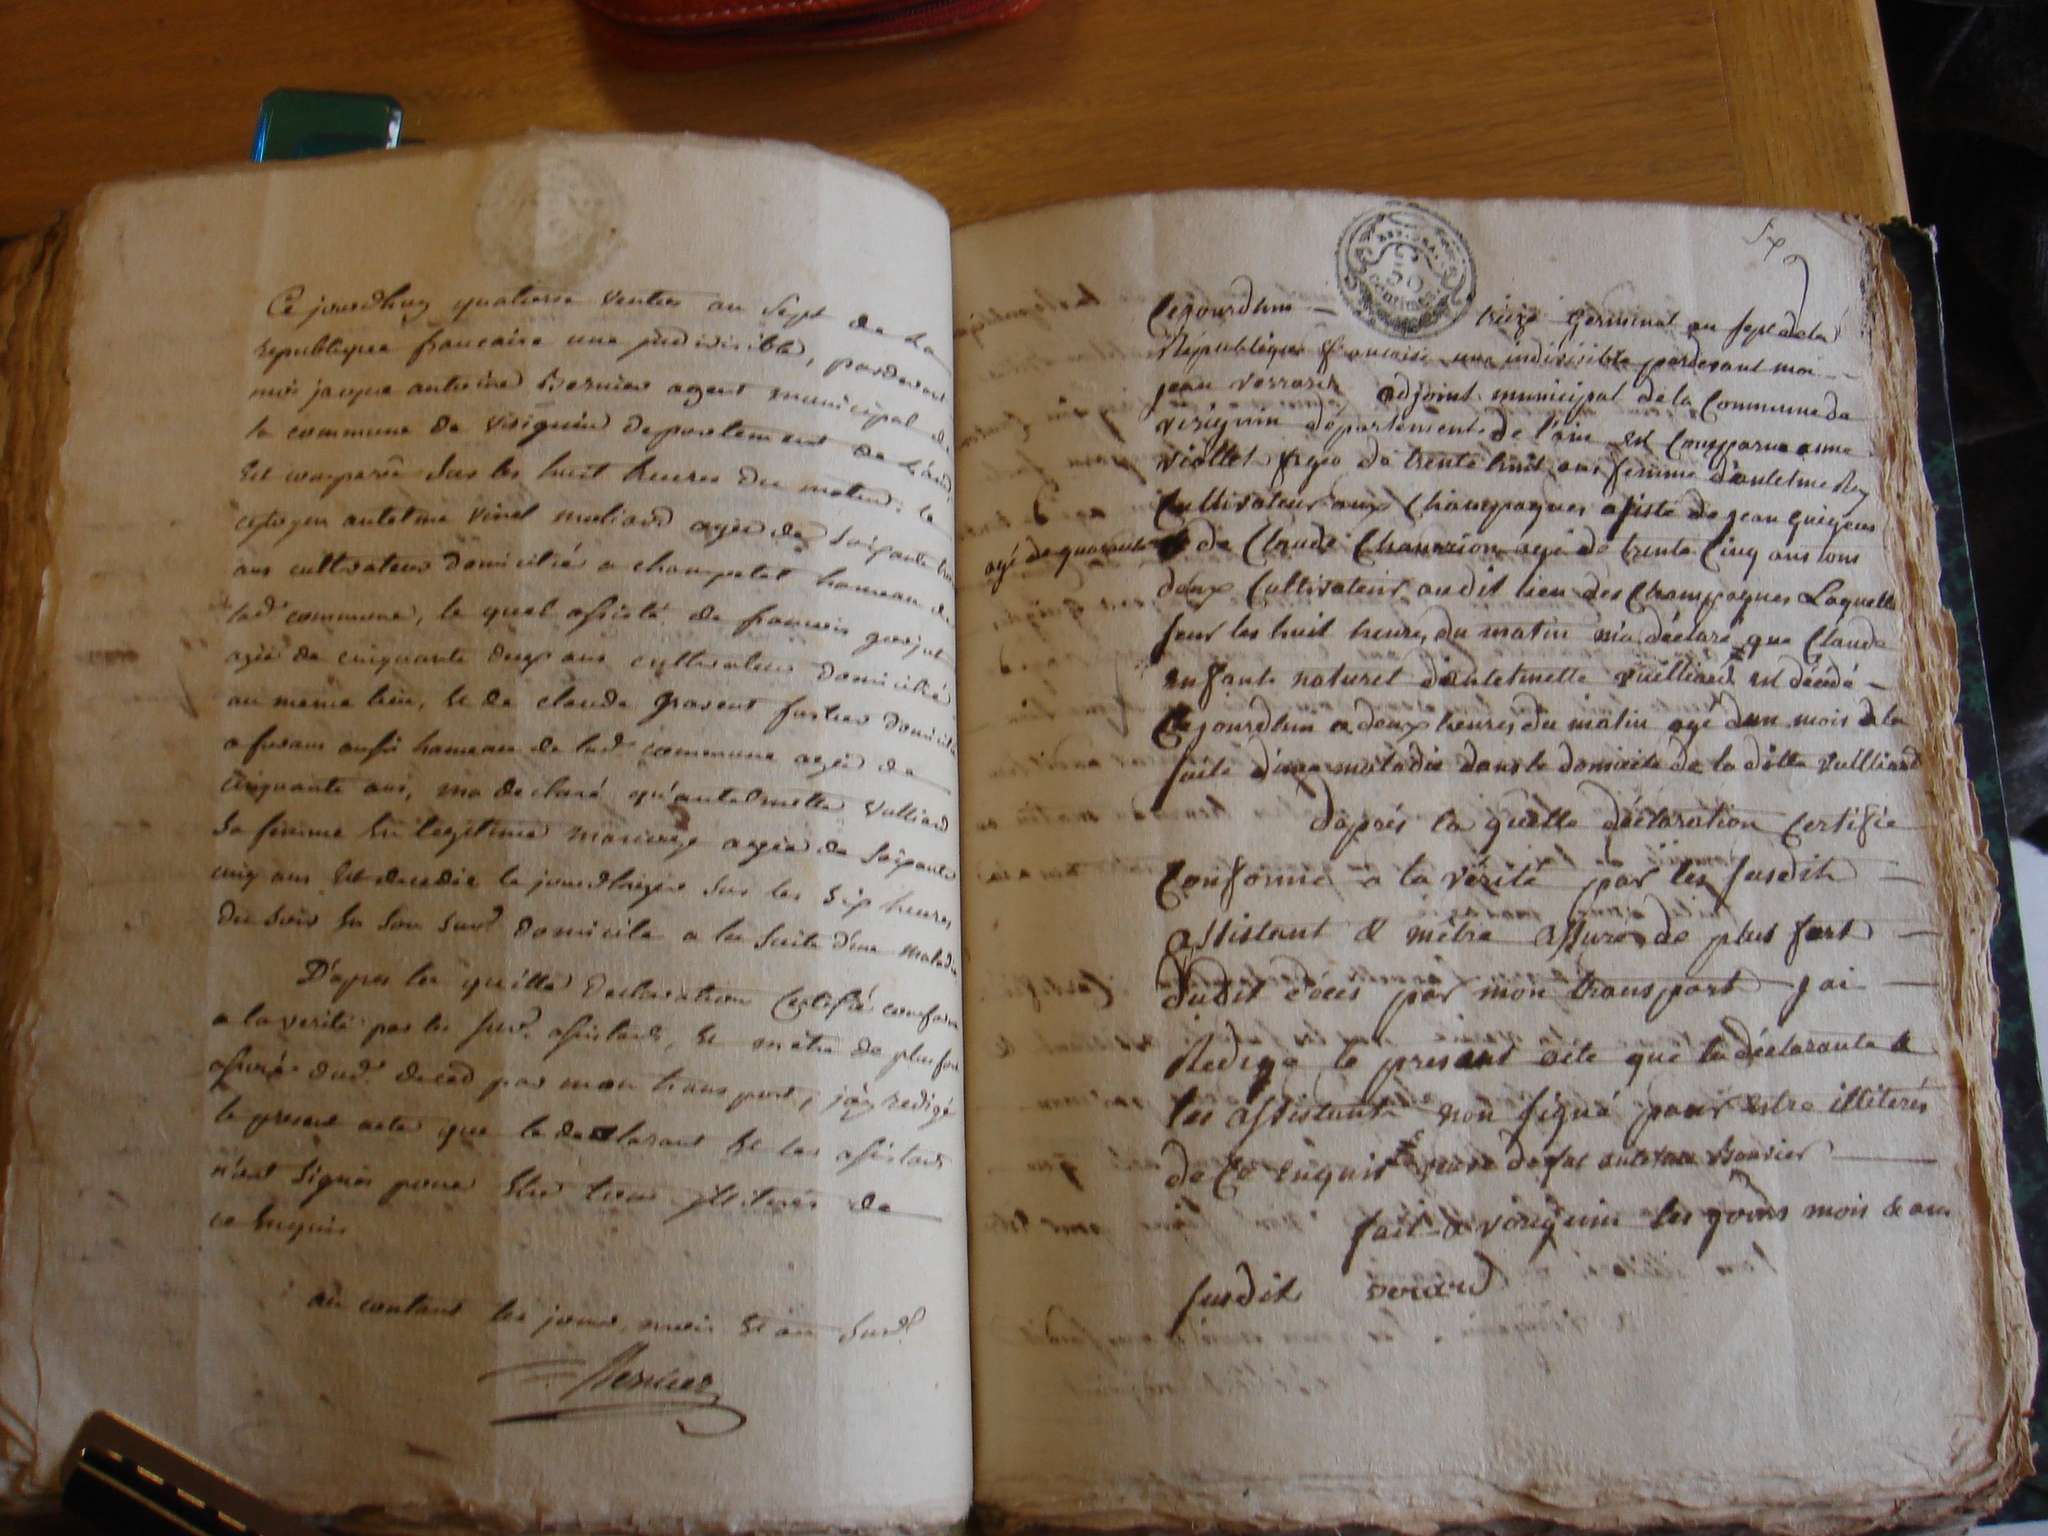 Ce jourdhuy quatorze ventos an sept de la
republique francaise une indivisible, pardevant
moi jacque antoine Bernier agent municipal de
la commune de virignin departement de L'ain,
Est comparû sur les huit heures du matin, le
citoyen antelme vinet muliard agée de soixante trois
ans cultivateur domicilié a champetel hameau de
lad. commune, le quel assisté de francois goujat
agée de cinquante deux ans cultivateur domicilié
au meme lieu, et de claude gravent fustier domicilie
a furans aussi hameau de lad. commune agée de
Cinquante ans, ma declaré qu'antelmette vulliard
sa femme En legitime mariage agée de soixante
cinq ans Est decedée le jourdhuyer sur les six heures
du soir En son susd. domicile a la suite d'une maladie
D'apres la quelle declaration Certifié conforme
a la verité par les susd. assistants, et m'etre de plus fort
assuré dud. deced par mon transport, j'ay redigé
le present acte que le declarant et les assistants
n'ont signés pour Etre tous illiterés de
ce Enquis
au contant les jours, mois et an susd.
Bernier
Cejourdhui treize germinal an sept de la
République francaise une indivisible pardevant moi
jean verrard adjoint municipal de la Commune de
virignin département de l'ain est Comparue anne
viollet agée de trente huit ans femme d'antelme Rey
Cultivateur aux Champagnes assisté de jean guigous
agé de quarante & de Claude Chanvrion agé de trente Cinq ans tous
deux Cultivateurs audit lieu des Champagnes Laquelle
sur les huit heures du matin m'a déclaré que Claude
enfante naturel d'antelmette vuilliard est décédé
Cejourdhui a deux heures du matin agé dun mois de la
suite d'une maladie dans le domicile de la ditte vulliard
d'aprés la quelle déclaration Certifié
Conforme a la vérité par les susdits
assistant & mêtre assuré de plus fort
dudit déces par mon transport j'ai
Redigé le présent acte que la déclarante &
les assistants non signé pour estre illiterés
de Ce enquis veuve de antelme Bouvier
fait a virignin les jours mois & an
susdit verard